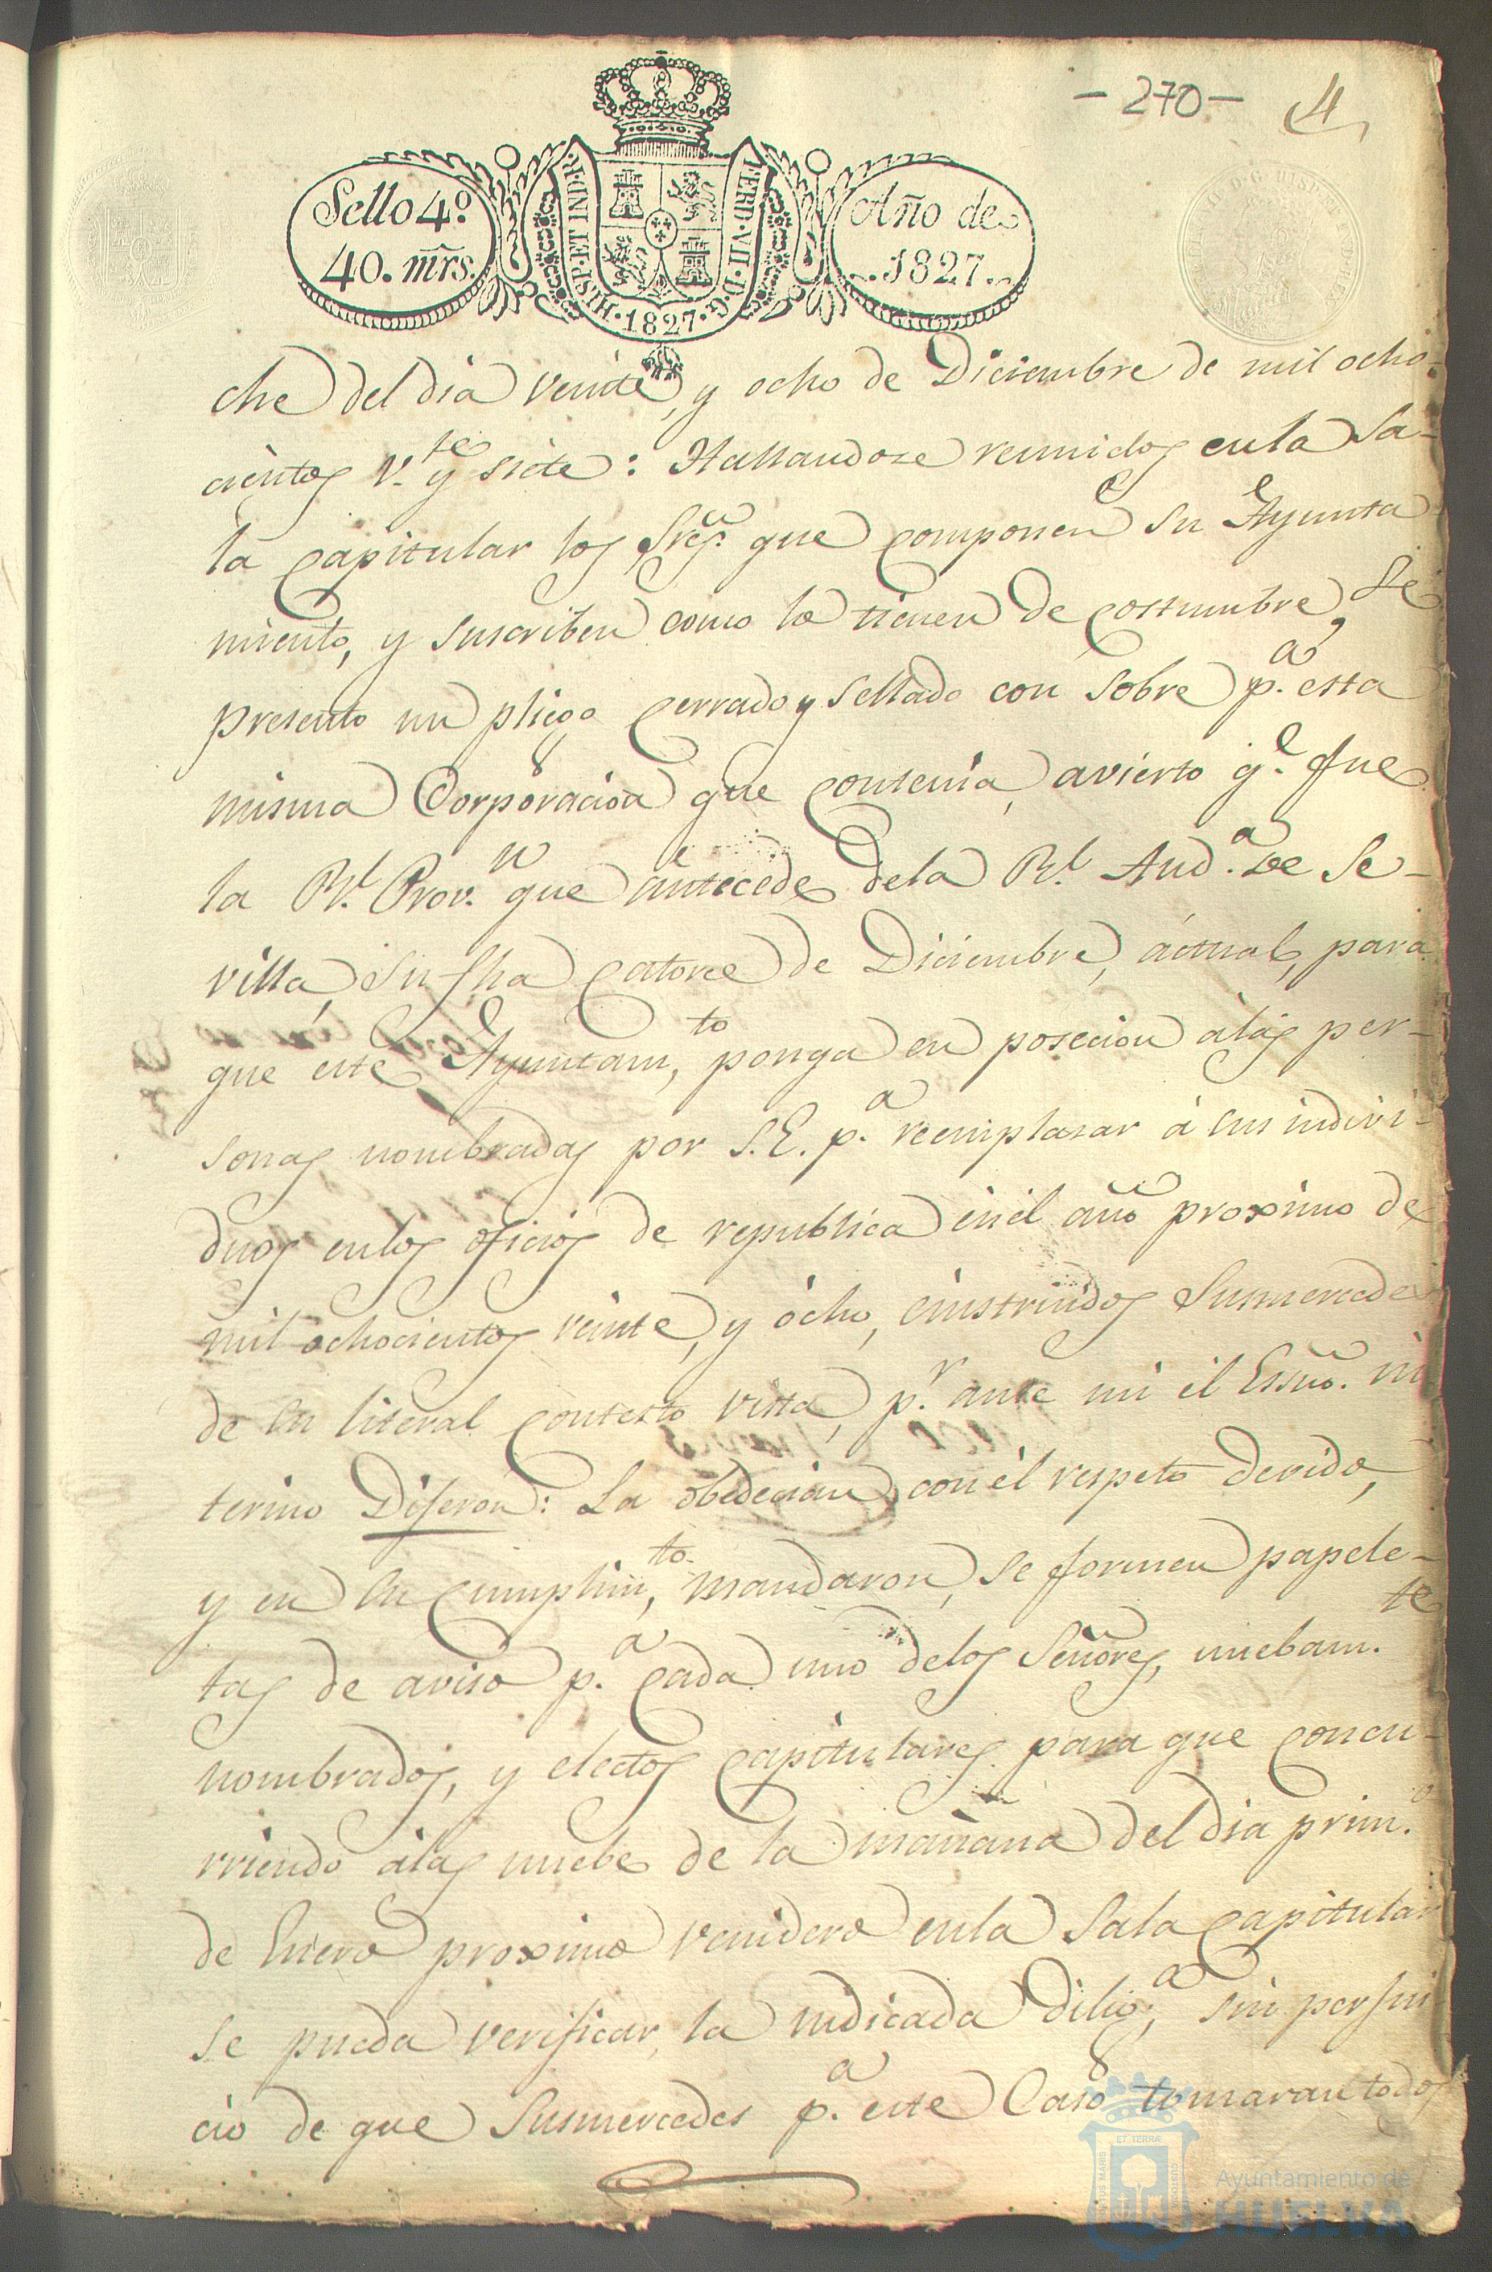 - 270 - 4
Sello 4º
40. mrs.
HISP. ET IND. R. FERD. VII. D. G.
· 1827 ·
Año de
1827.
che del dia veinte, y ocho de Diciembre de mil ocho-
cientos v.te y siete: Hallandose reunidos en la Sa-
la Capitular los Sres. que componen su Ayunta
miento, y suscriben como lo tienen de costumbre, se
presento un pliego cerrado y sellado con sobre p.a esta
misma Corporacion que contenia, avierto q.e fue
la Rl. Prov.n que antecede de la Rl. Aud.a de Se-
villa, su fha catorce de Diciembre, actual, para
que este Ayuntam,to ponga en posecion a las per-
sonas nombradas por S.E. p.a reemplasar á sus indivi-
duos en los oficios de republica en el año proximo de
mil ochocientos veinte, y ocho, é instruidos Susmercedes
de su literal contesto vista, p.r ante mi el Essno. in
terino Dijeron: La obedecian con el respeto devido,
y en su cumplim,to mandaron, se formen papele-
tas de aviso p.a cada uno de los Señores, nuebam.te
nombrados, y electos Capitulares para que concu-
rriendo a las nuebe de la mañana del dia prim.o
de Enero proximo venidero en la Sala Capitular
se pueda verificar, la indicada dilig,a sin perjui
cio de que Susmercedes p.a este Caso tomaran todos
Ayuntamiento de
HUELVA